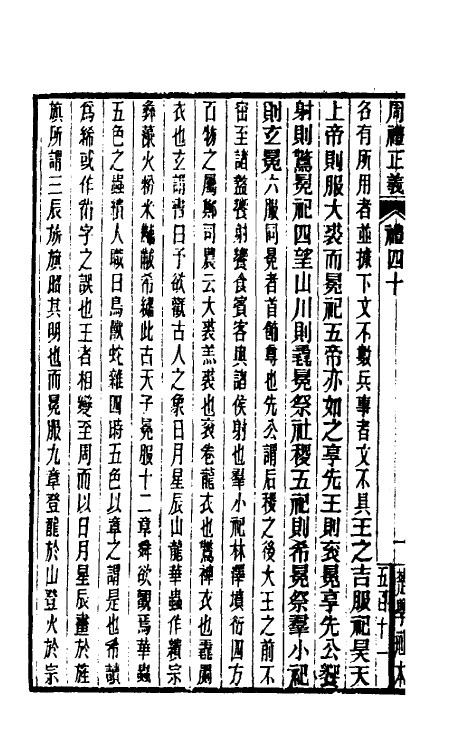 周禮正義 禮四十 一 五百十一 楚學社本
各有所用者並據下文不數兵事者文不具王之吉服祀昊天
上帝則服大裘而冕祀五帝亦如之享先王則袞冕享先公饗
射則鷩冕祀四望山川則毳冕祭社稷五祀則希冕祭羣小祀
則玄冕六服同冕者首飾尊也先公謂后稷之後大王之前不
窋至諸盩饗射饗食賓客與諸侯射也羣小祀林澤墳衍四方
百物之屬鄭司農云大裘羔裘也袞卷龍衣也鷩裨衣也毳罽
衣也玄謂書曰予欲觀古人之象日月星辰山龍華蟲作繢宗
彝藻火粉米黼黻希繡此古天子冕服十二章舜欲觀焉華蟲
五色之蟲繢人職曰鳥獸蛇雜四時五色以章之謂是也希讀
為絺或作黹字之誤也王者相變至周而以日月星辰畫於旌
旗所謂三辰旂旗昭其明也而冕服九章登龍於山登火於宗